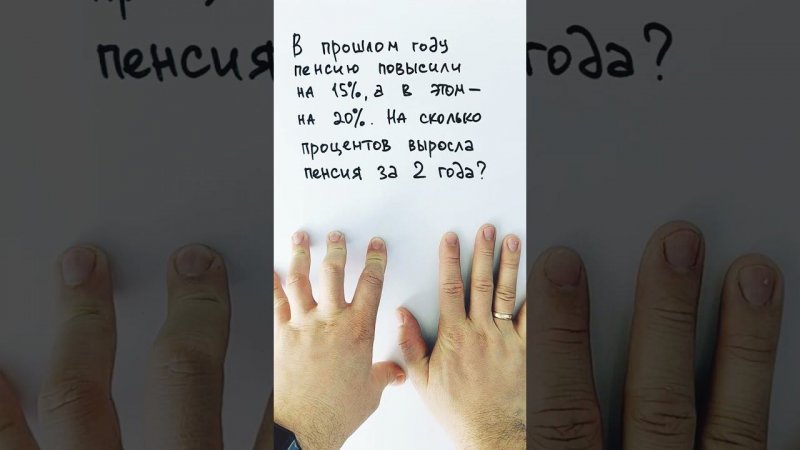 В прошлом году
пенсию повысили
на 15%, а в этом –
на 20%. На сколько
процентов выросла
пенсия за 2 года?